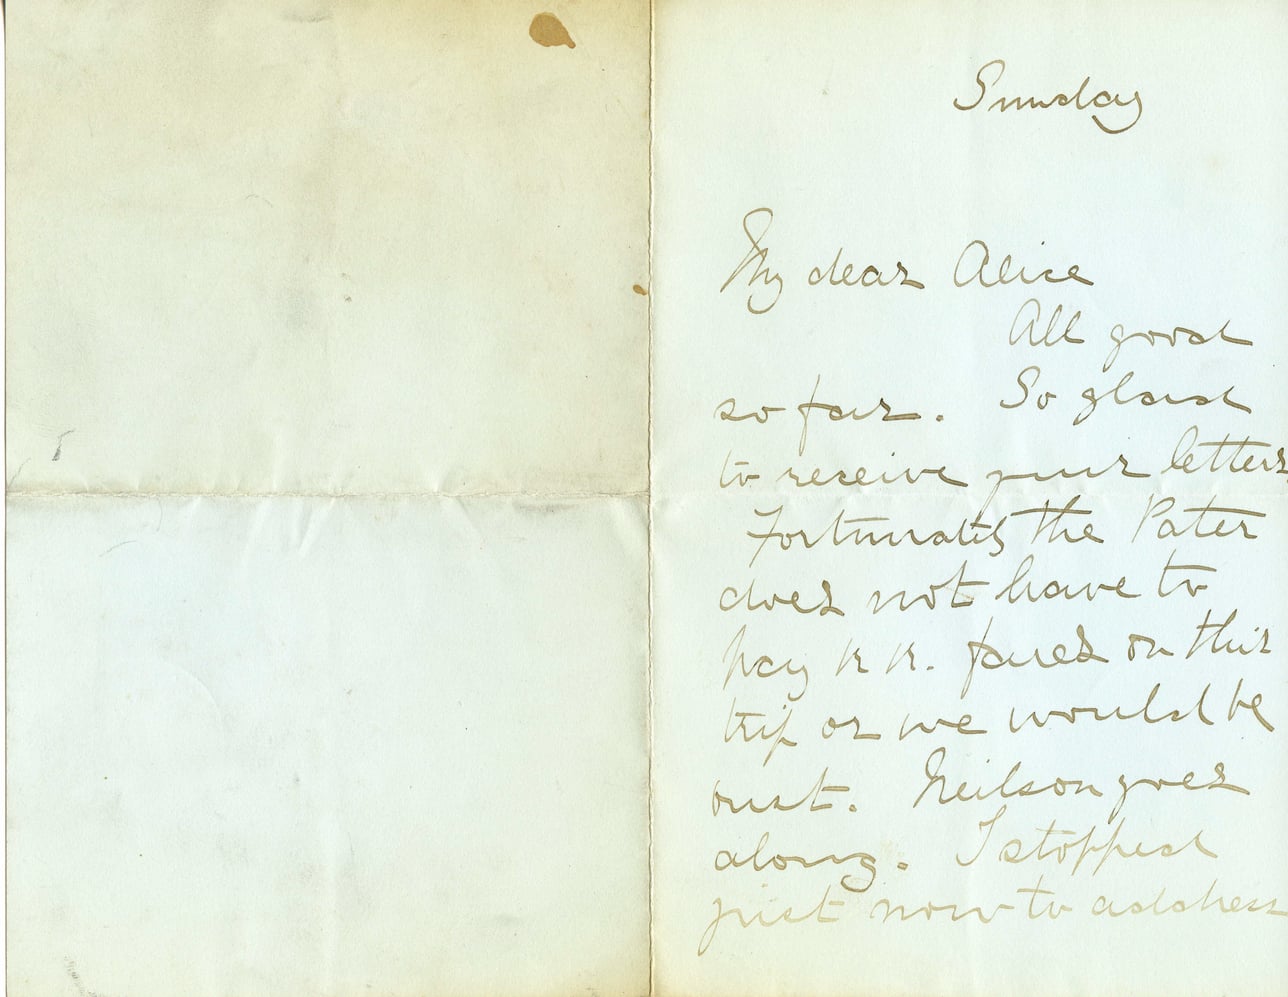 Sunday
My dear Alice
All good
so far. So glad
to receive your letters
Fortunately the Pater
does not have to
pay R R. fares on this
trip or we would be
bust. Neilson goes
along. I stopped
just now to address